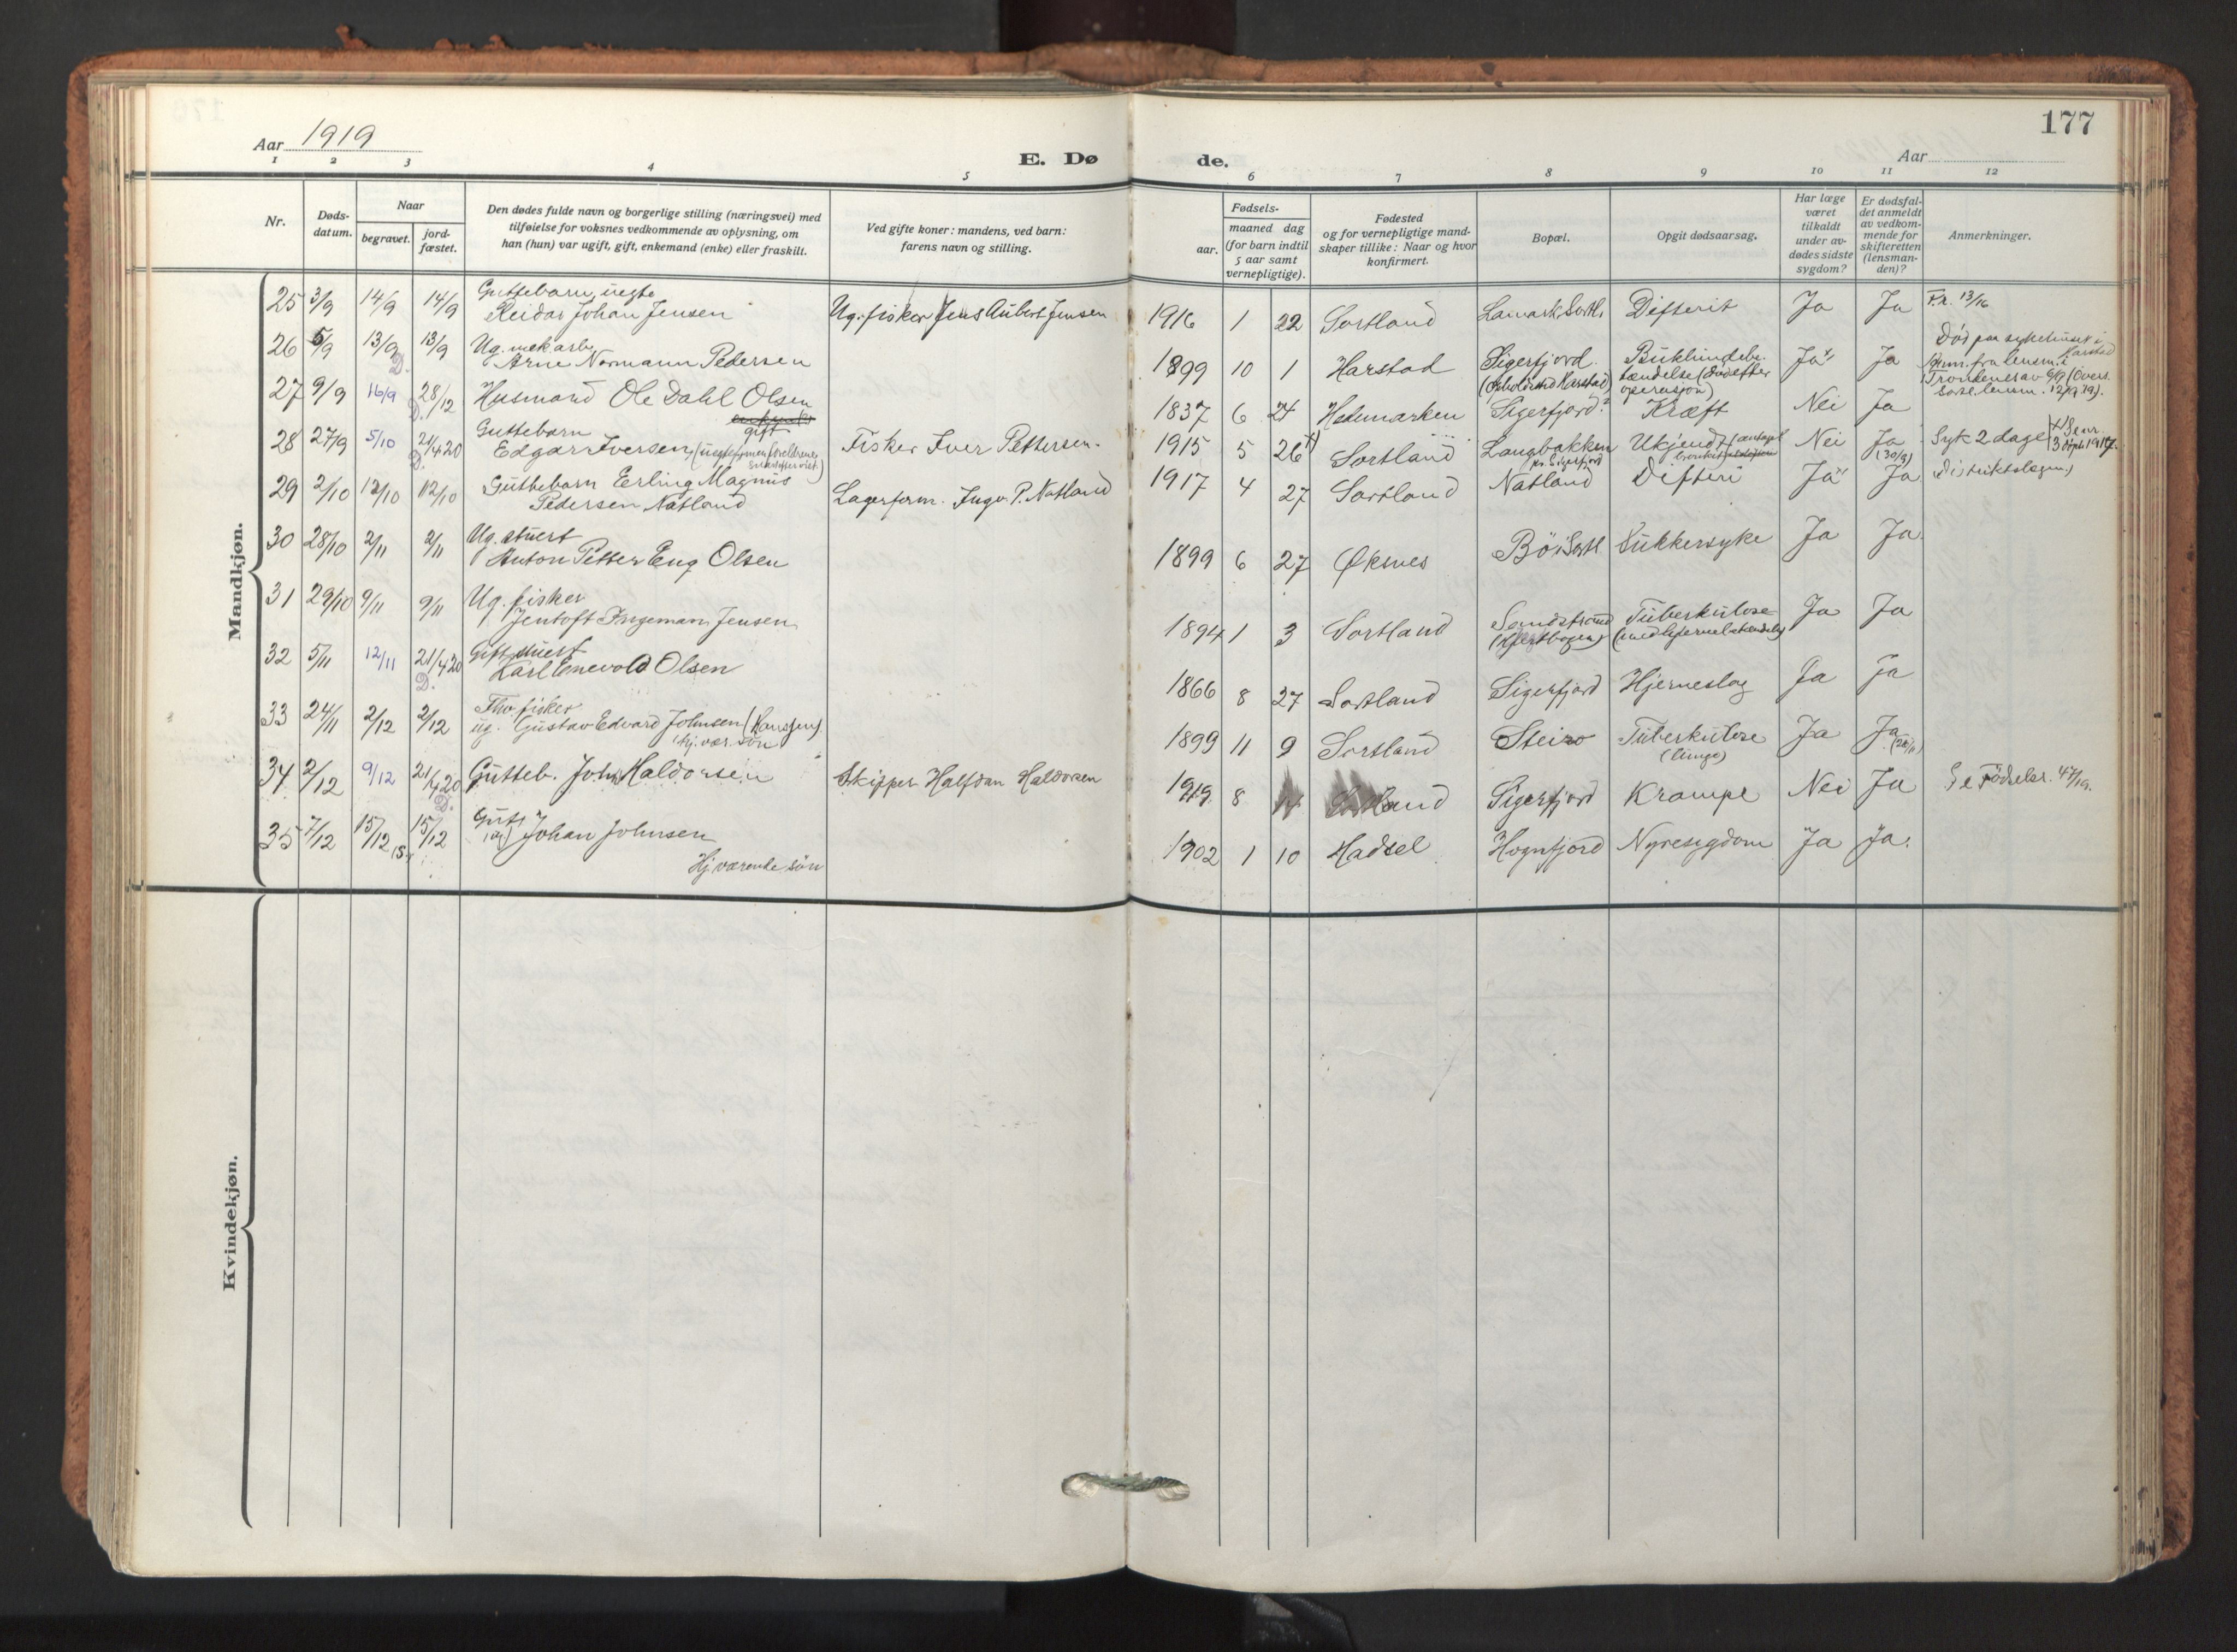 Aar 1919
E. Døde.
177
Aar
1 2 3 4 5 6 7 8 9 10 11 12
Nr.
Døds-
datum.
Naar
begravet.
jord-
fæstet.
Den dødes fulde navn og borgerlige stilling (næringsvei) med
tilføielse for voksnes vedkommende av oplysning, om
han (hun) var ugift, gift, enkemand (enke) eller fraskilt.
Ved gifte koner: mandens, ved barn:
farens navn og stilling.
Fødsels-
aar.
maaned dag
(for barn indtil
5 aar samt
vernepligtige).
Fødested
og for vernepligtige mand-
skaper tillike: Naar og hvor
konfirmert.
Bopæl.
Opgit dødsaarsag.
Har læge
været
tilkaldt
under av-
dødes sidste
sygdom?
Er dødsfal-
det anmeldt
av vedkom-
mende for
skifteretten
(lensman-
den)?
Anmerkninger.
Mandkjøn.
25 3/9 14/9 14/9 Guttebarn, uegte
Reidar Johan Jensen Ug. fisker Jens Aubert Jensen 1916 1 22 Sortland Lamark, Sortl. Difterit Ja Ja F.r. 13/16
26 5/9 13/9 D. 13/9 Ug. mek. arb.
Arne Normann Pedersen 1899 10 1 Harstad Sigerfjord
(Opholdssted Harstad) Bukhindebe-
tændelse (Død efter
operasjon) Ja Ja Død paa sykehuset i
Harstad
27 9/9 16/9 28/12 D. Husmand Ole Dahl Olsen
gift 1837 6 24 Hedemarken Sigerfjord Kræft Nei Ja
28 27/9 5/10 21/4 20 D. Guttebarn
Edgar Iversen Fisker Iver Pettersen 1915 5 26 Sortland Langbakken
pr. Sigerfjord Ukjendt Nei Ja
(30/9) Syk 2 dage
29 2/10 12/10 12/10 Guttebarn Erling Magnus
Pedersen Natland Lagerform. Ingv. P. Natland 1917 4 27 Sortland Natland Difteri Ja Ja
30 28/10 2/11 2/11 Ug. stuert
Anton Petter Eng Olsen 1899 6 27 Øksnes Bö i Sortl. Sukkersyke Ja Ja
31 29/10 9/11 9/11 Ug. fisker
Jentoft Ingemann Jensen 1894 1 3 Sortland Sandstrand Tuberkulose Ja Ja
32 5/11 12/11 21/4 20 D. Gift stuert
Karl Enevold Olsen 1866 8 27 Sortland Sigerfjord Hjerneslag Ja Ja
33 24/11 2/12 2/12 fisker
ug. Gustav Edvard Johnsen (Hanssen)
hj. vær. søn 1899 11 9 Sortland Steiro Tuberkulose
(lunge) Ja Ja
34 2/12 9/12 21/4 20 D. Gutteb. John Haldorsen Skipper Halfdan Haldorsen 1919 8 Sortland Sigerfjord Krampe Nei Ja Se Födselsr. 47/19.
35 7/12 15/12 15/12 Gutt
(ug) Johan Johnsen
Hj. værende søn 1902 1 10 Hadsel Hognfjord Nyresygdom Ja Ja.
Kvindekjøn.